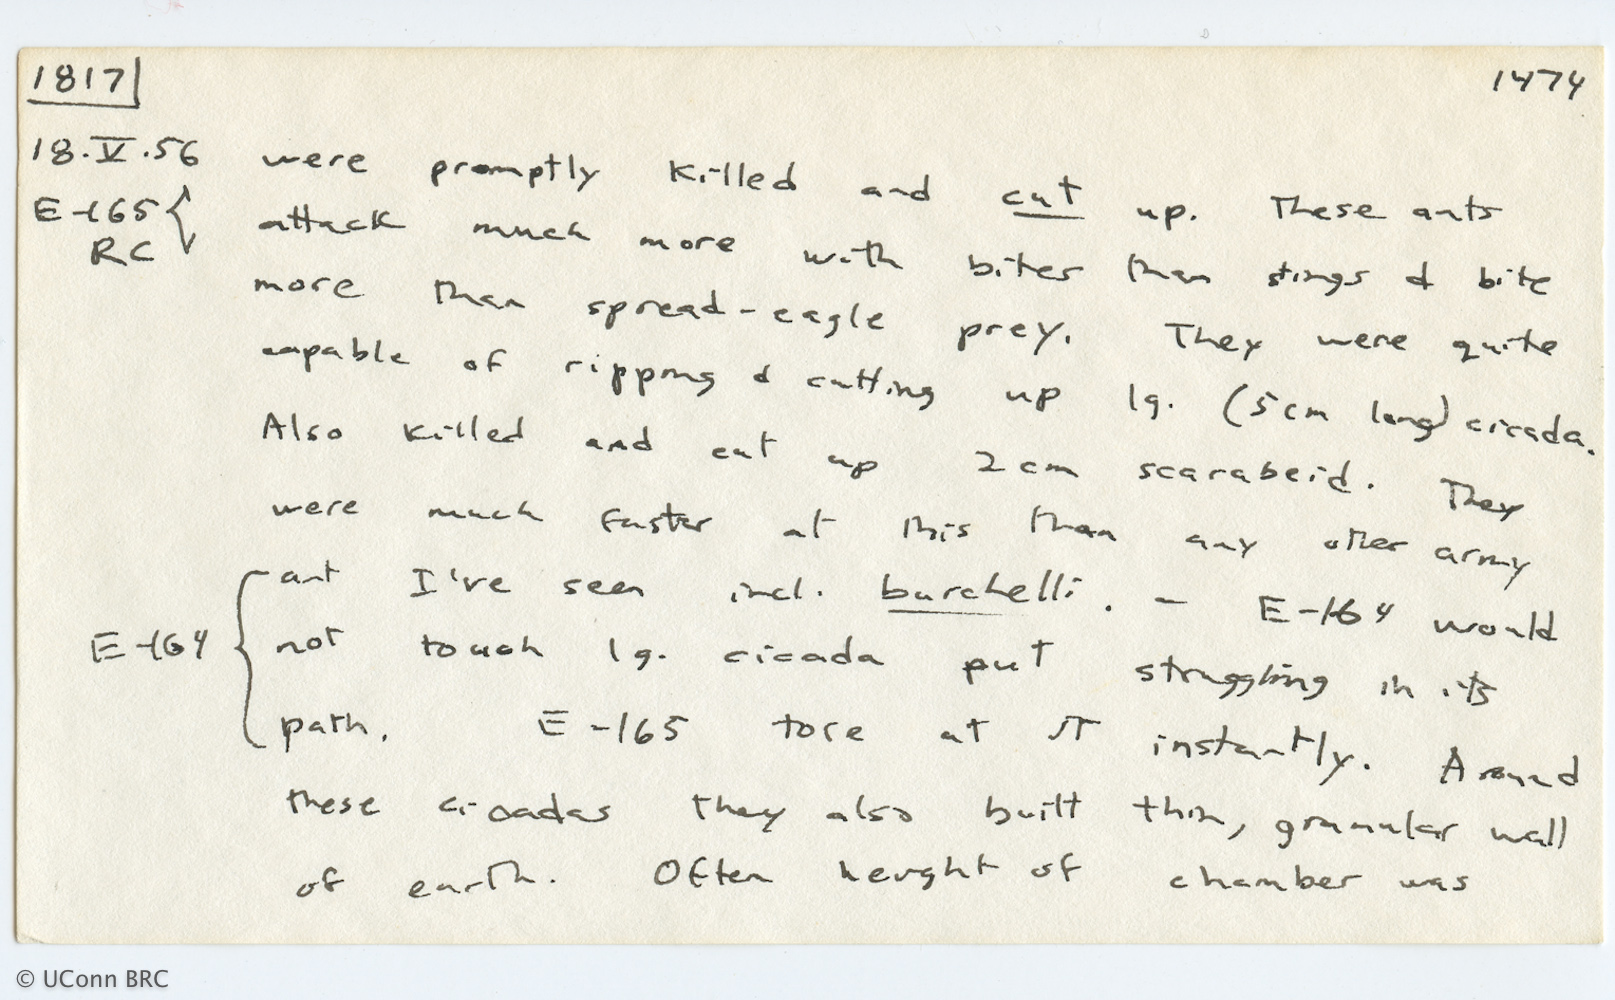 1817
1474
18.V.56
E-165
RC
were promptly killed and cut up. These ants
attack much more with bites than stings & bite
more than spread-eagle prey. They were quite
capable of ripping & cutting up lg. (5cm long) cicada.
Also killed and cut up 2cm scarabeid. They
were much faster at this than any other army
ant I've seen incl. burchelli. - E-164 would
E-164
not touch lg. cicada put struggling in its
path. E-165 tore at it instantly. Around
these cicadas they also built thin, granular wall
of earth. Often height of chamber was
© UConn BRC